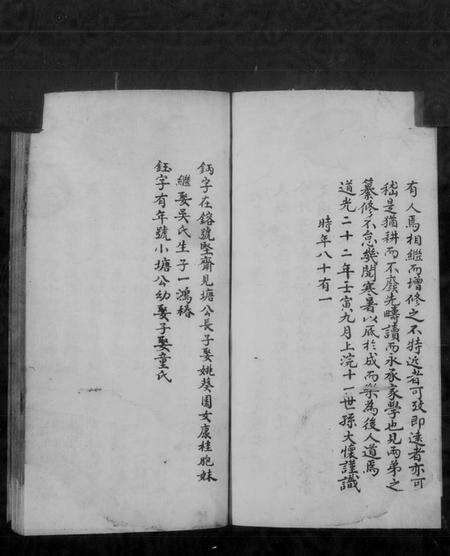 有人焉相繼而增修之不特近者可攷即遠者亦可
嵇是猶耕而不廢先疇讀而永承家學也見兩弟之
纂修不怠幾閱寒暑以底於成而樂為後人道焉
道光二十二年壬寅九月上浣十一世孫大懷謹識
時年八十有一
鈣字在鎔號堅齋見塘公長子娶姚葵園女康桂胞妹
繼娶吳氏生子一鴻椿
鈺字有年號小塘公幼娶子娶童氏